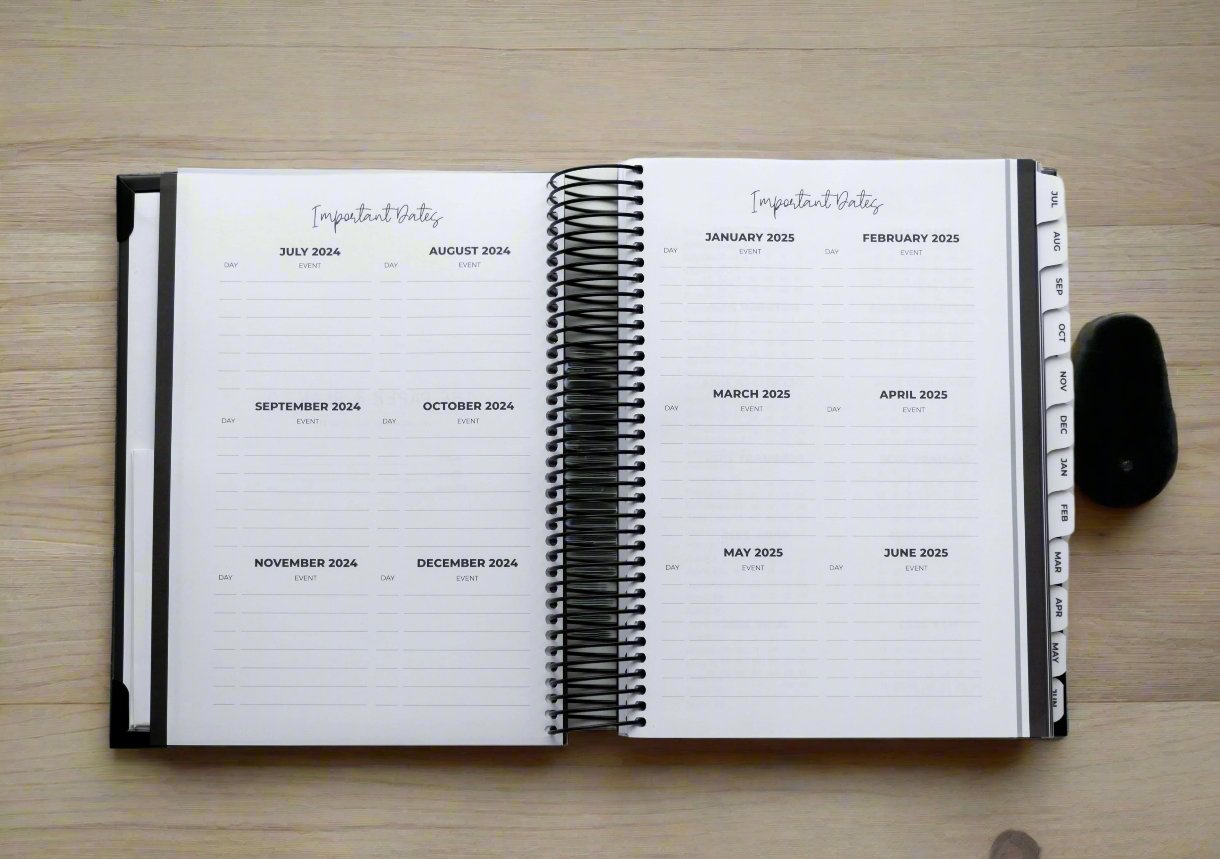 Important Dates
JULY 2024 AUGUST 2024
DAY EVENT DAY EVENT
SEPTEMBER 2024 OCTOBER 2024
DAY EVENT DAY EVENT
NOVEMBER 2024 DECEMBER 2024
DAY EVENT DAY EVENT
Important Dates
JANUARY 2025 FEBRUARY 2025
DAY EVENT DAY EVENT
MARCH 2025 APRIL 2025
DAY EVENT DAY EVENT
MAY 2025 JUNE 2025
DAY EVENT DAY EVENT
JUL
AUG
SEP
OCT
NOV
DEC
JAN
FEB
MAR
APR
MAY
JUN